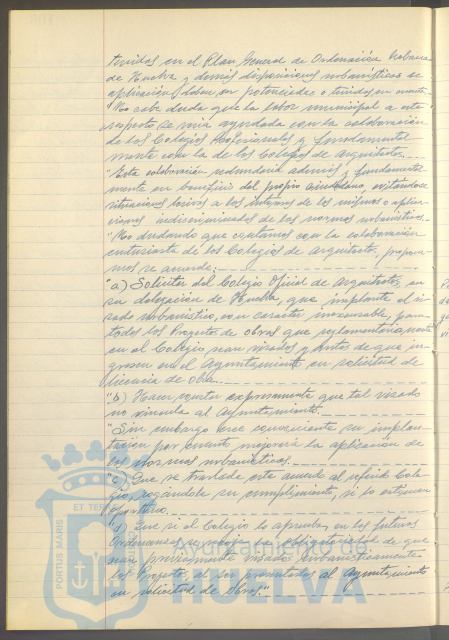 tenidas en el Plan General de Ordenación Urbana
de Huelva y demás disposiciones urbanísticas de
aplicación, deben ser potenciadas o tenidas en cuenta.
"No cabe duda que la labor municipal a este
respecto se vería ayudada con la colaboración
de los Colegios Profesionales y fundamental
mente con la de los Colegios de Arquitectos.
"Esta colaboración redundaría además y fundamental
mente en beneficio del propio ciudadano, evitándose
situaciones lesivas a los intereses de los mismos o aplica
ciones indiscriminadas de las normas urbanísticas.
"No dudando que contamos con la colaboración
entusiasta de los Colegios de Arquitectos, propone
mos se acuerde:
"a) Solicitar del Colegio Oficial de Arquitectos, en
su delegación de Huelva, que implante el vi
sado urbanístico, con carácter inexcusable, para
todos los Proyectos de obras que reglamentariamente
en el Colegio sean visados y antes de que in
gresen en el Ayuntamiento en solicitud de
licencia de obra.
"b) Hacer constar expresamente que tal visado
no vincula al Ayuntamiento.
"Sin embargo cree conveniente su implan
tación por cuanto mejorará la aplicación de
las normas urbanísticas.
"c) Que se traslade este acuerdo al referido Cole
gio, rogándole su cumplimiento, si lo estiman
oportuno.
"d) Que si el Colegio lo aprueba, en las futuras
Ordenanzas se recoja la obligatoriedad de que
sean previamente visados urbanísticamente
los Proyectos, al ser presentados al Ayuntamiento
en solicitud de Obras."
PORTUS MARIS
ET TERRAE
Ayuntamiento de
HUELVA